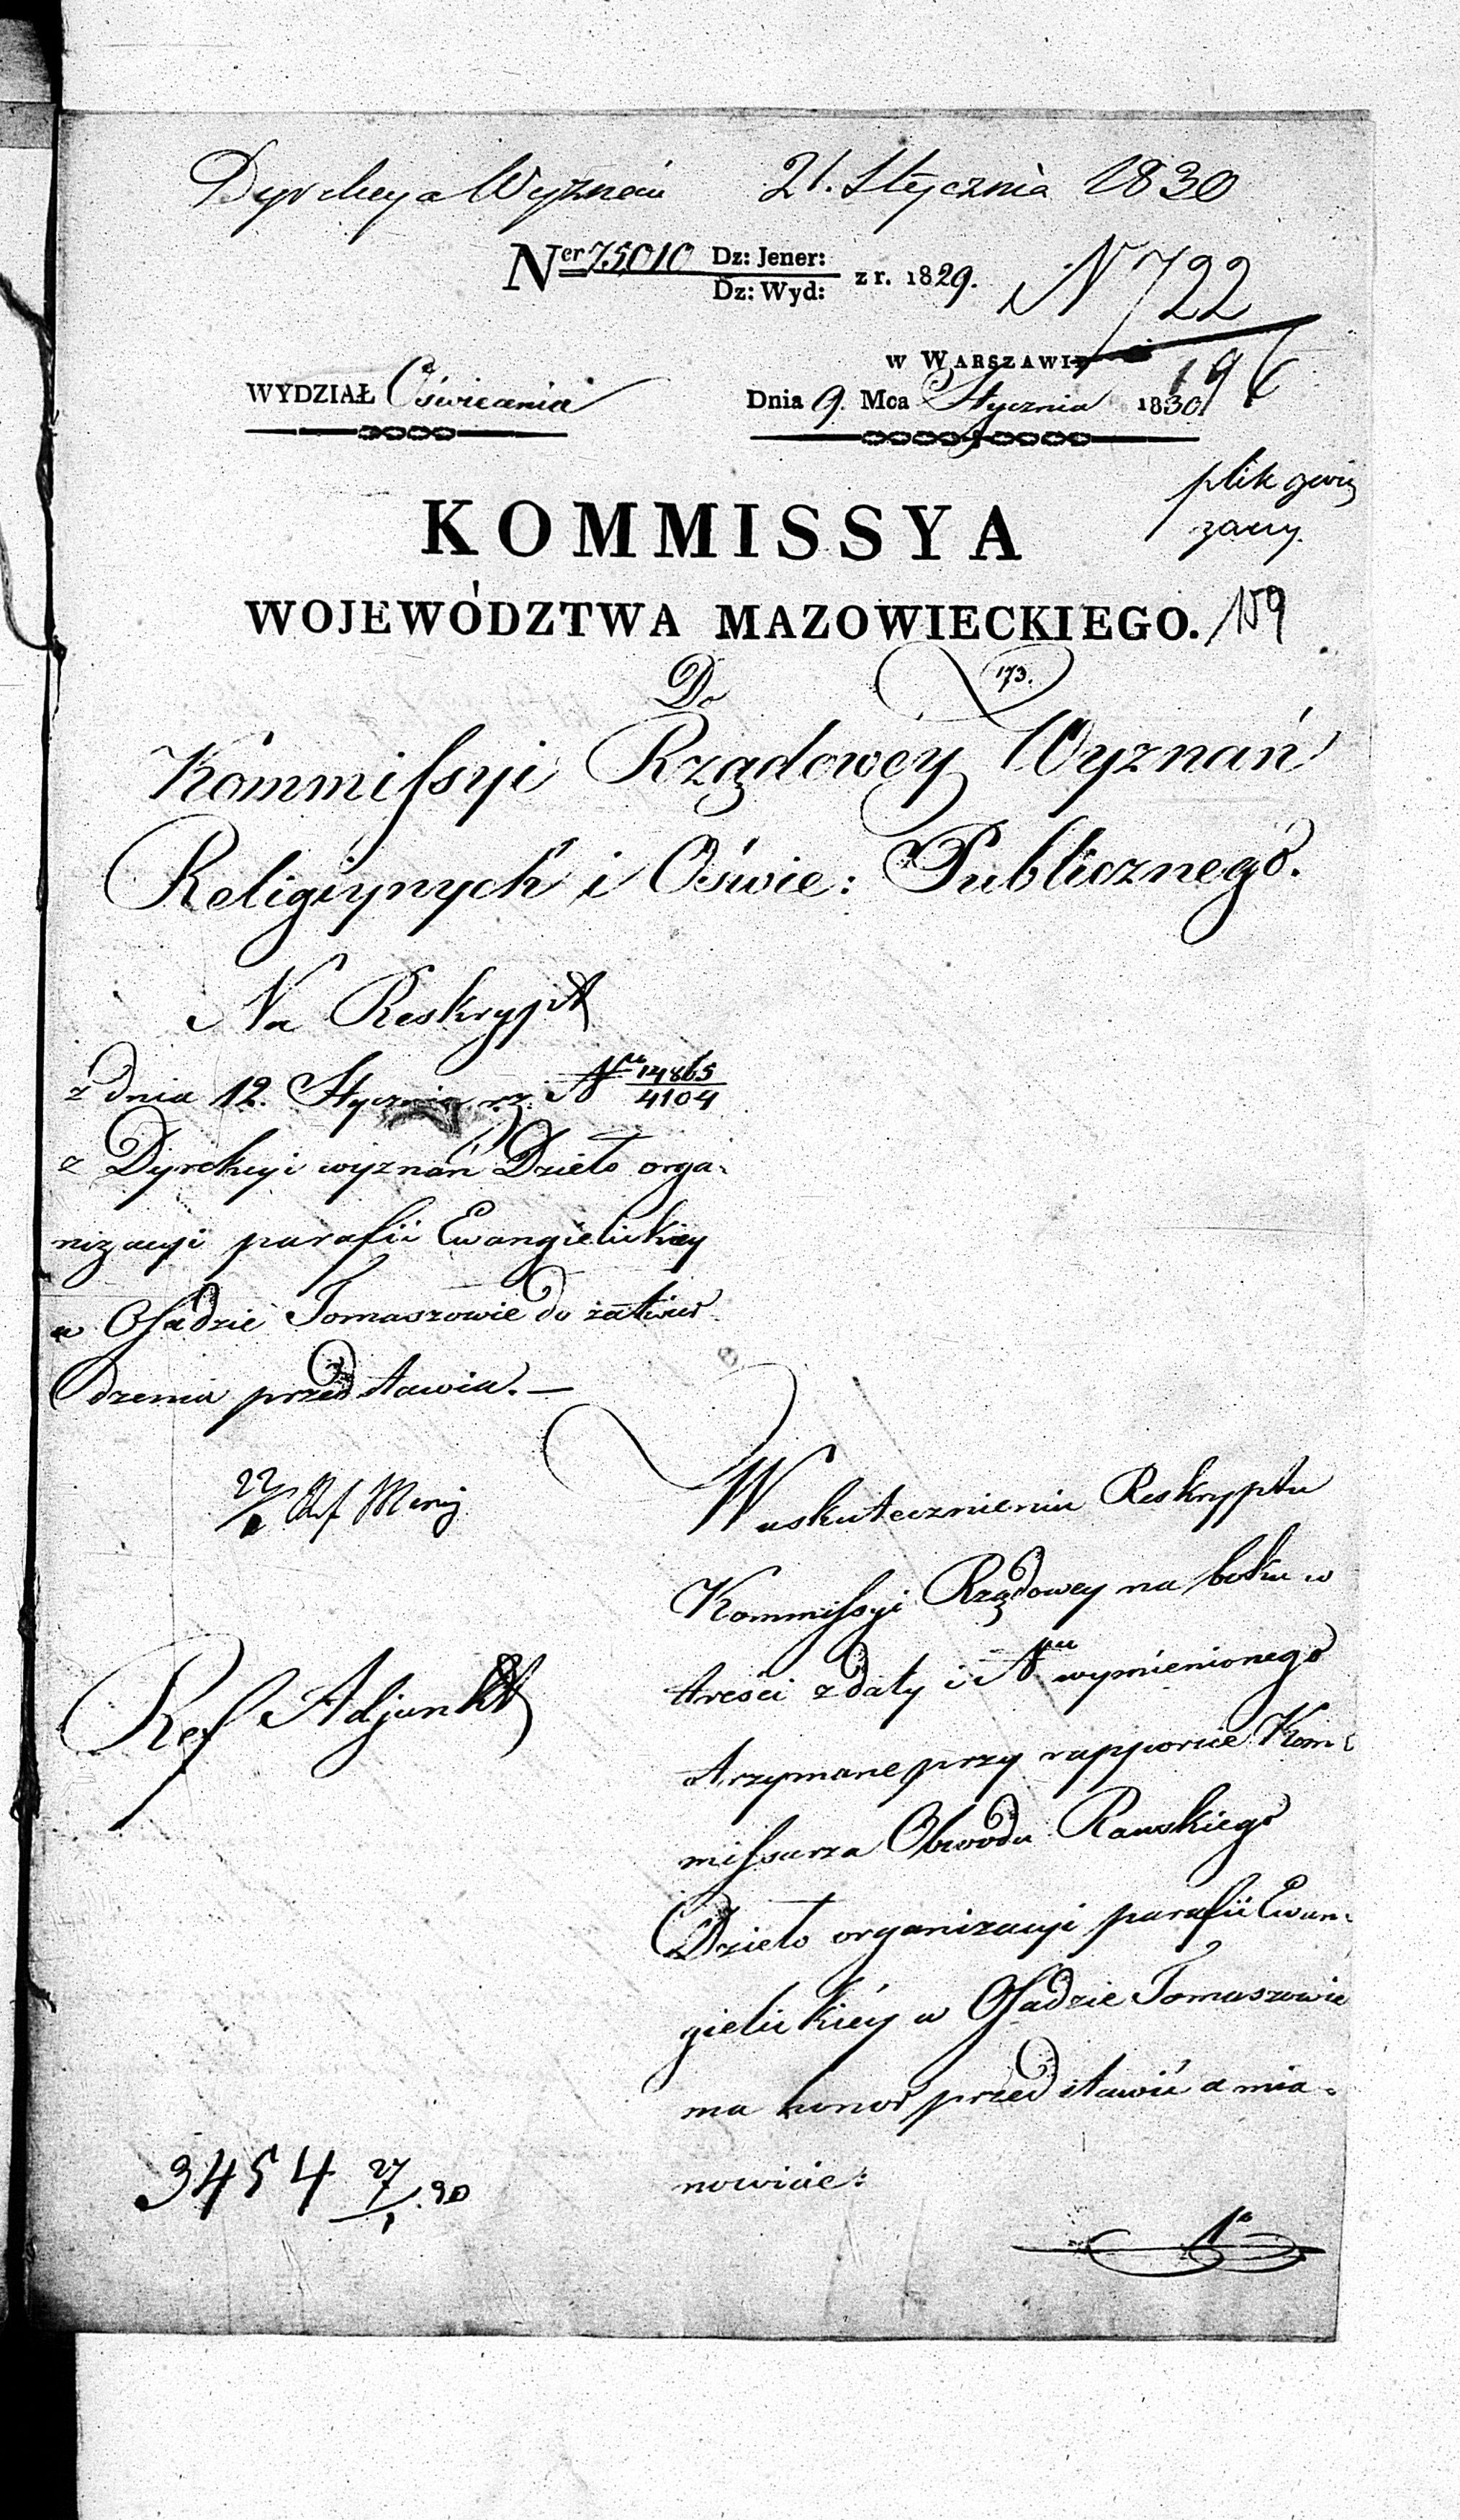 Dyrekcya Wyznań 21. Stycznia 1830
Ner 75010 Dz: Jener: z r. 1829. N 722
Dz: Wyd:
w Warszawie 196
WYDZIAŁ Oświecenia Dnia 9. Mca Stycznia 1830
plik
KOMMISSYA
WOJEWÓDZTWA MAZOWIECKIEGO. 159
Do 173.
Kommissyi Rządowéy Wyznań
Religiynych i Oświe: Publicznego.
Na Reskrypt
z dnia 12. Stycznia r.z. Nru 14865
4104
z Dyrekcyi wyznań Dzieło orga-
nizacyi parafii Ewangielickiey
w Osadzie Tomaszowie do zatwier-
dzenia przedstawia. —
22 Ref
W uskutecznieniu Reskryptu
Kommissyi Rządowey na boku w
treści z daty i Nru wymienionego
Ref Adjunkt
otrzymane przy rapporcie Kom-
missarza Obwodu Rawskiego
Dzieło organizacyi parafii Ewan-
gielickiéy w Osadzie Tomaszowie
ma honor przedstawić a mia-
nowicie:
3454 27/1.30
1o